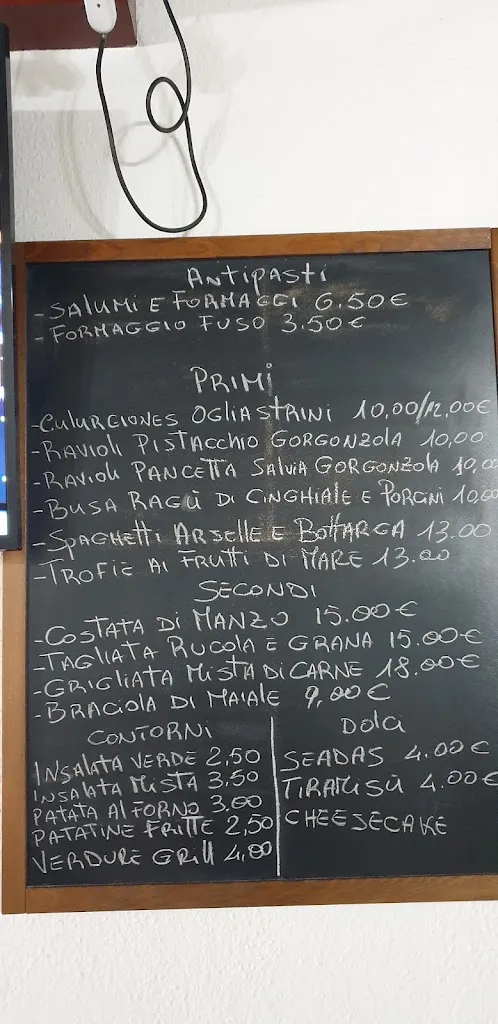 ANTIPASTI
- SALUMI E FORMAGGI 6.50€
- FORMAGGIO FUSO 3.50€
PRIMI
- CULURCIONES OGLIASTRINI 10,00/12,00€
- RAVIOLI PISTACCHIO GORGONZOLA 10,00
- RAVIOLI PANCETTA SALVIA GORGONZOLA 10,00
- BUSA RAGÙ DI CINGHIALE E PORCINI 10,00
- SPAGHETTI ARSELLE E BOTTARGA 13.00
- TROFIE AI FRUTTI DI MARE 13.00
SECONDI
- COSTATA DI MANZO 15.00€
- TAGLIATA RUCOLA E GRANA 15.00€
- GRIGLIATA MISTA DI CARNE 18.00€
- BRACIOLA DI MAIALE 9,00€
CONTORNI
INSALATA VERDE 2,50
INSALATA MISTA 3,50
PATATA AL FORNO 3,00
PATATINE FRITTE 2,50
VERDURE GRILL 4,00
DOLCI
SEADAS 4.00€
TIRAMISÙ 4.00€
CHEESECAKE